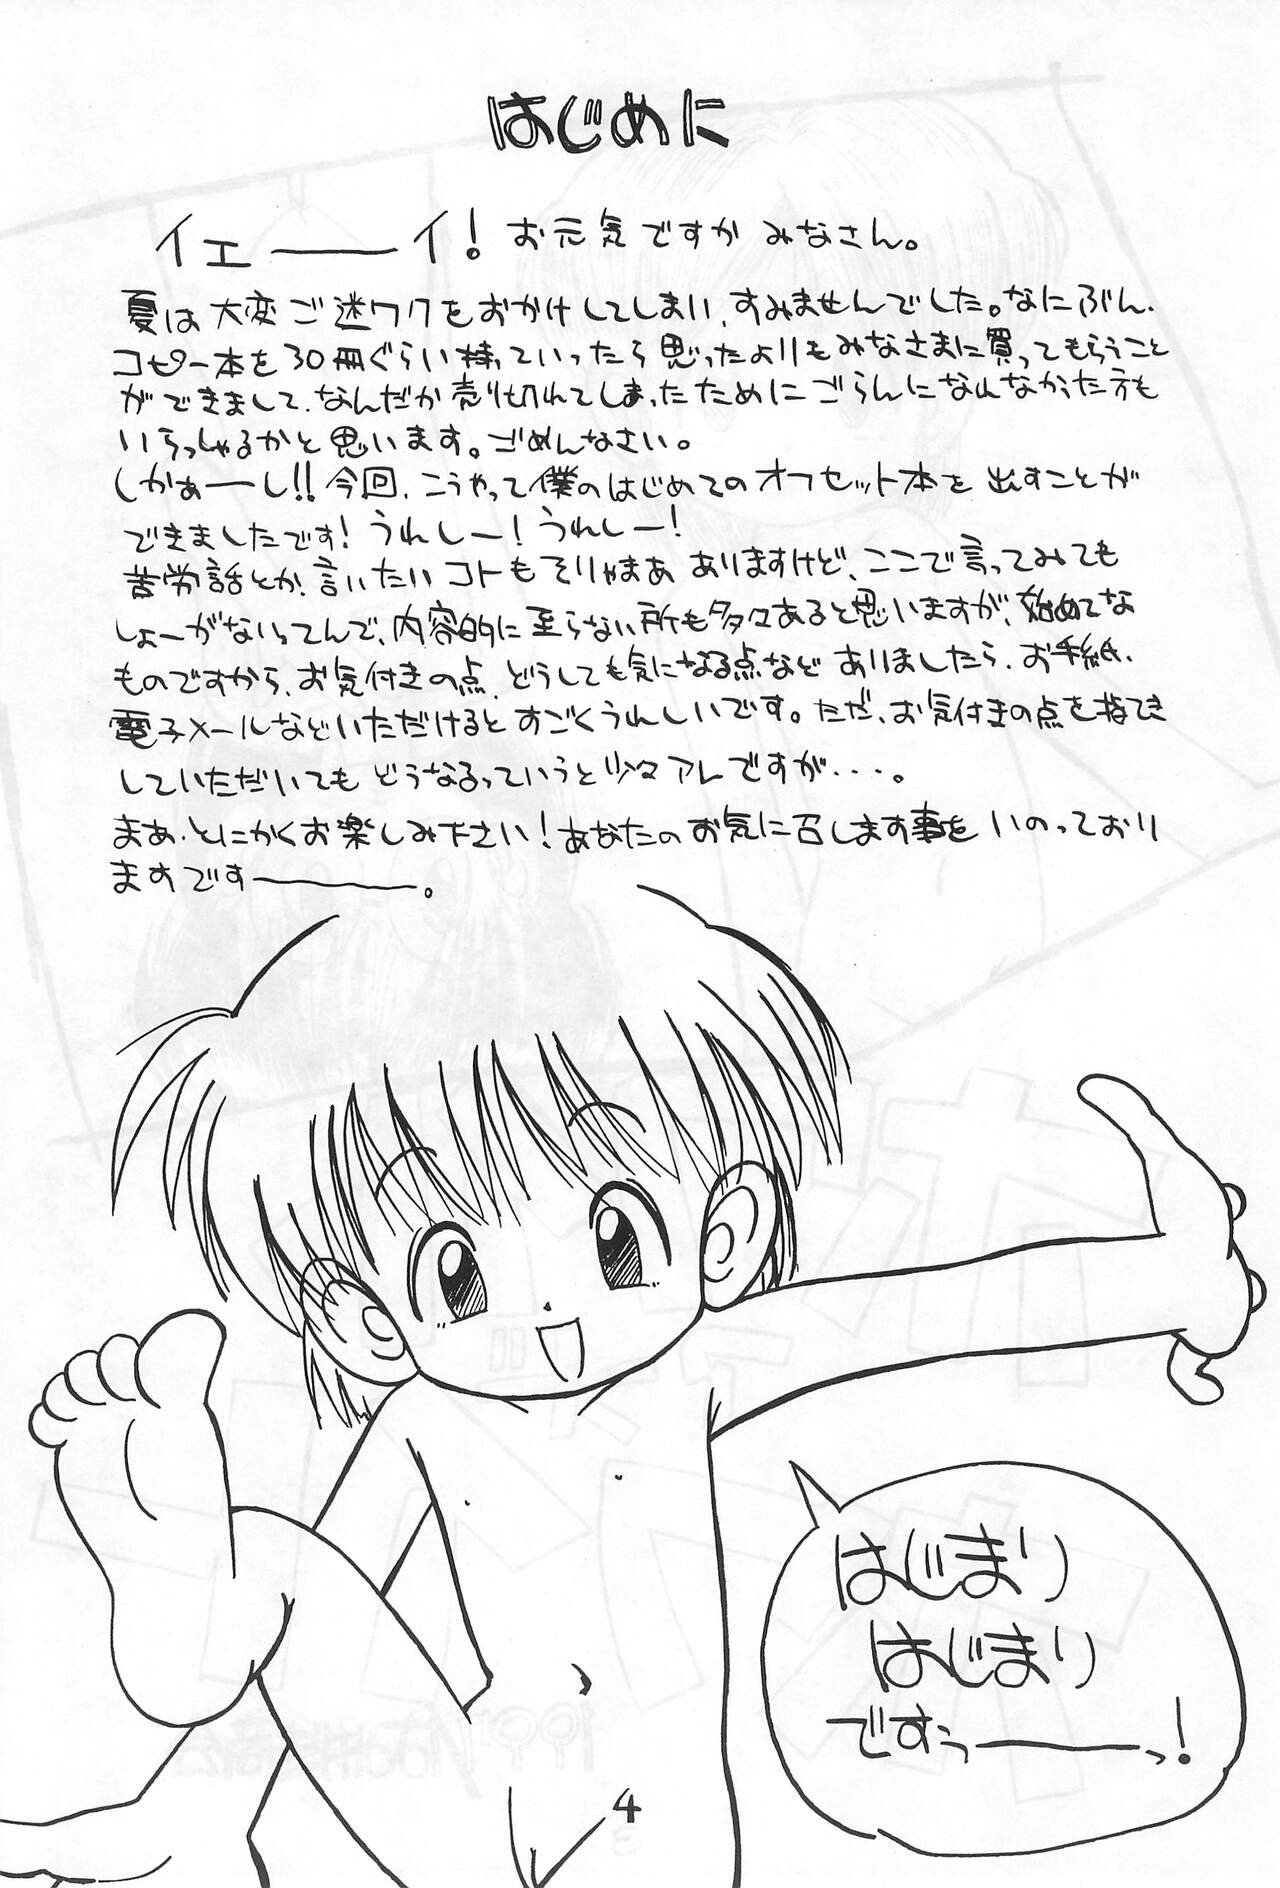 はじめに
イエーーイ! お元気ですか みなさん。
夏は大変ご迷ワクをおかけしてしまい、すみませんでした。なにぶん、
コピー本を30冊ぐらい持っていったら思ったよりもみなさまに買ってもらうこと
ができまして、なんだか売り切れてしまったためにごらんになれなかった方も
いらっしゃるかと思います。ごめんなさい。
しかぁーーし!!今回、こうやって僕のはじめてのオフセット本を出すことが
できましたです!うれしー!うれしー!
苦労話とか、言いたいコトもそりゃまあありますけど、ここで言ってみても
しょーがないってんで、内容的に至らない所も多々あると思いますが、始めてな
ものですから、お気付きの点、どうしても気になる点などありましたら、お手紙、
電子メールなどいただけるとすごくうれしいです。ただ、お気付きの点を指てき
していただいてもどうなるっていうと少々アレですが・・・。
まあ、とにかくお楽しみ下さい!あなたのお気に召します事をいのっており
ますですーーー。
はじまり
はじまり
ですぅーーーっ!
4